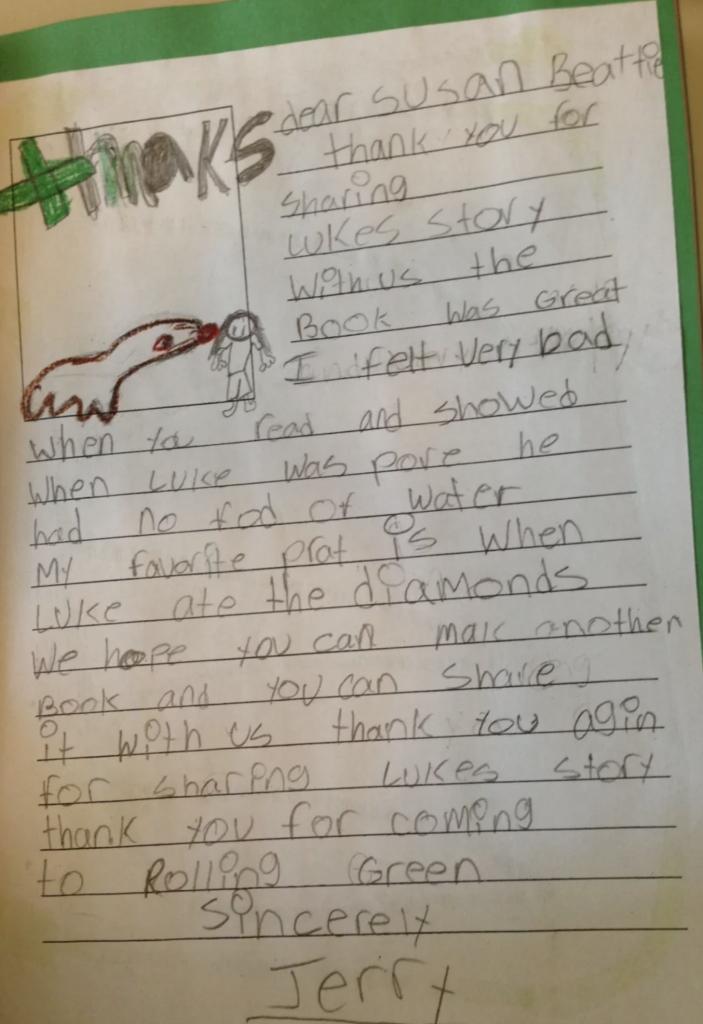 thnaks
dear susan Beattie
thank you for
sharing
LUKes story
With us the
Book was Great
I felt very bad
When you read and showed
When LUKe was pore he
had no fod or water
My favorite prat is when
LUKe ate the diamonds
We hope you can mak another
Book and you can share
it with us thank you agin
for shareng LUKes story
thank you for coming
to Rolling Green
Sincerely
Jerry